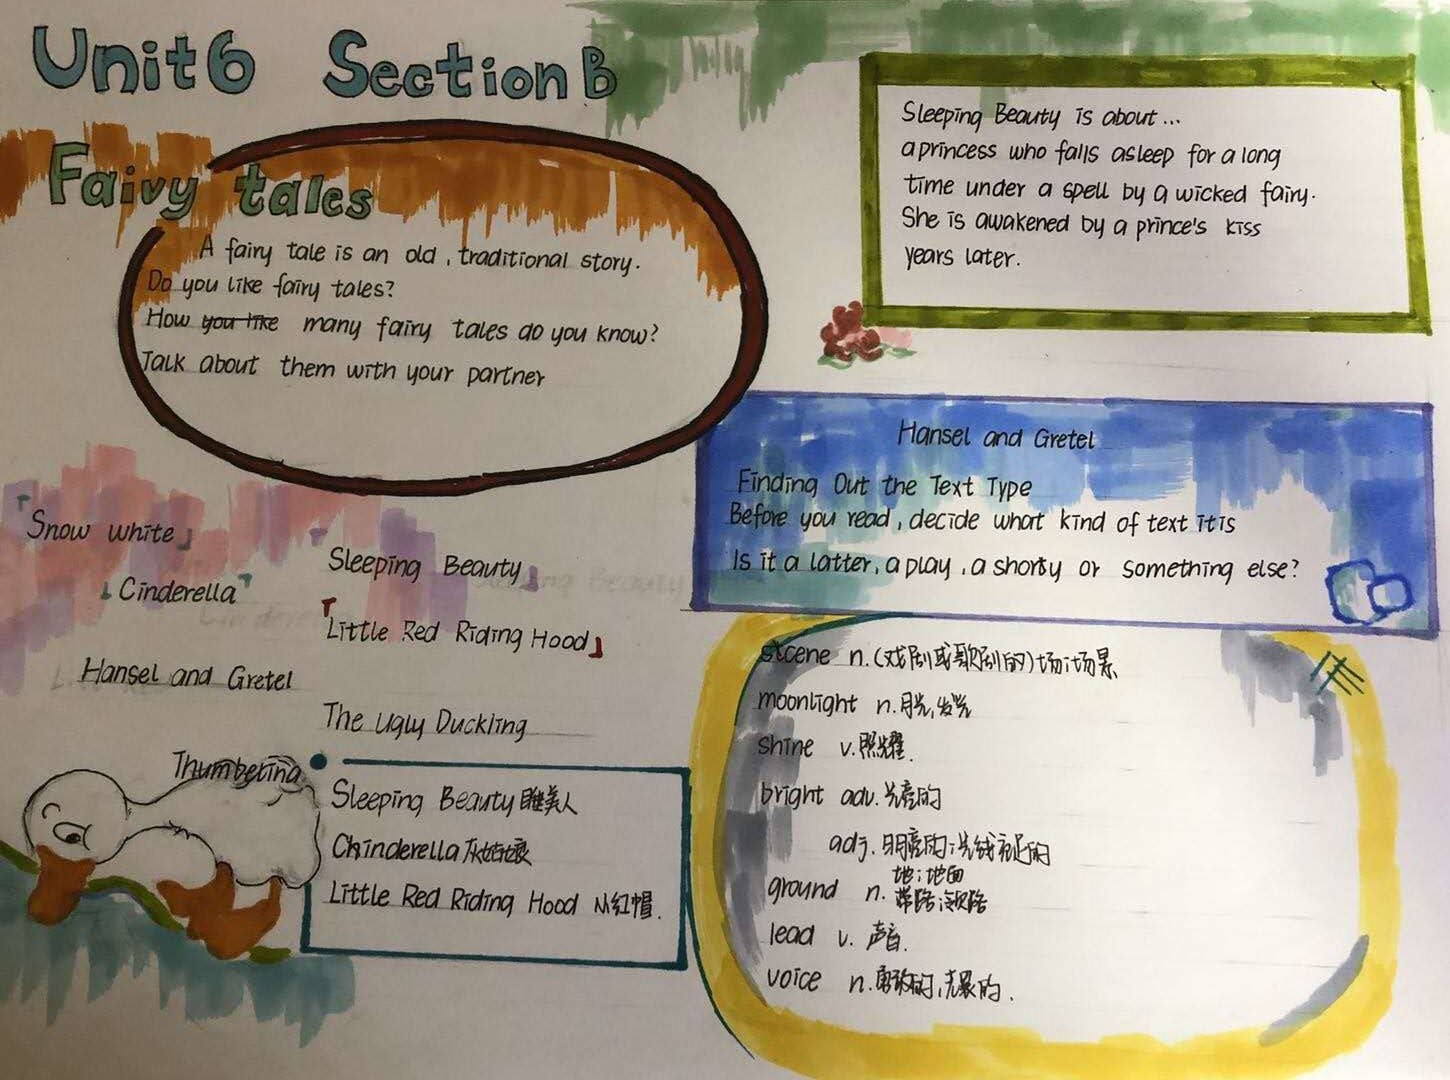 Unit6 Section B
Faivy tales
A fairy tale is an old , traditional story.
Do you like fairy tales?
How you like many fairy tales do you know?
Talk about them with your partner
Sleeping Beauty is about...
a princess who falls asleep for a long
time under a spell by a wicked fairy.
She is awakened by a prince's kiss
years later.
Hansel and Gretel
Finding Out the Text Type
Before you read , decide what kind of text it is
Is it a latter, a play , a short y or something else?
「Snow white」
Sleeping Beauty」
Cinderella
「Little Red Riding Hood」
Hansel and Gretel
The Ugly Duckling
Thumbelina
Sleeping Beauty 睡美人
Chinderella 灰姑娘
Little Red Riding Hood 小红帽.
scene n.(戏剧或歌剧的)场;场景
moonlight n.月光,发光
shine v.照耀.
bright adv.光亮的
adj.明亮的;光线充足的
ground n. 地;地面
带路;领路
lead v. 声音.
voice n.勇敢的,的.